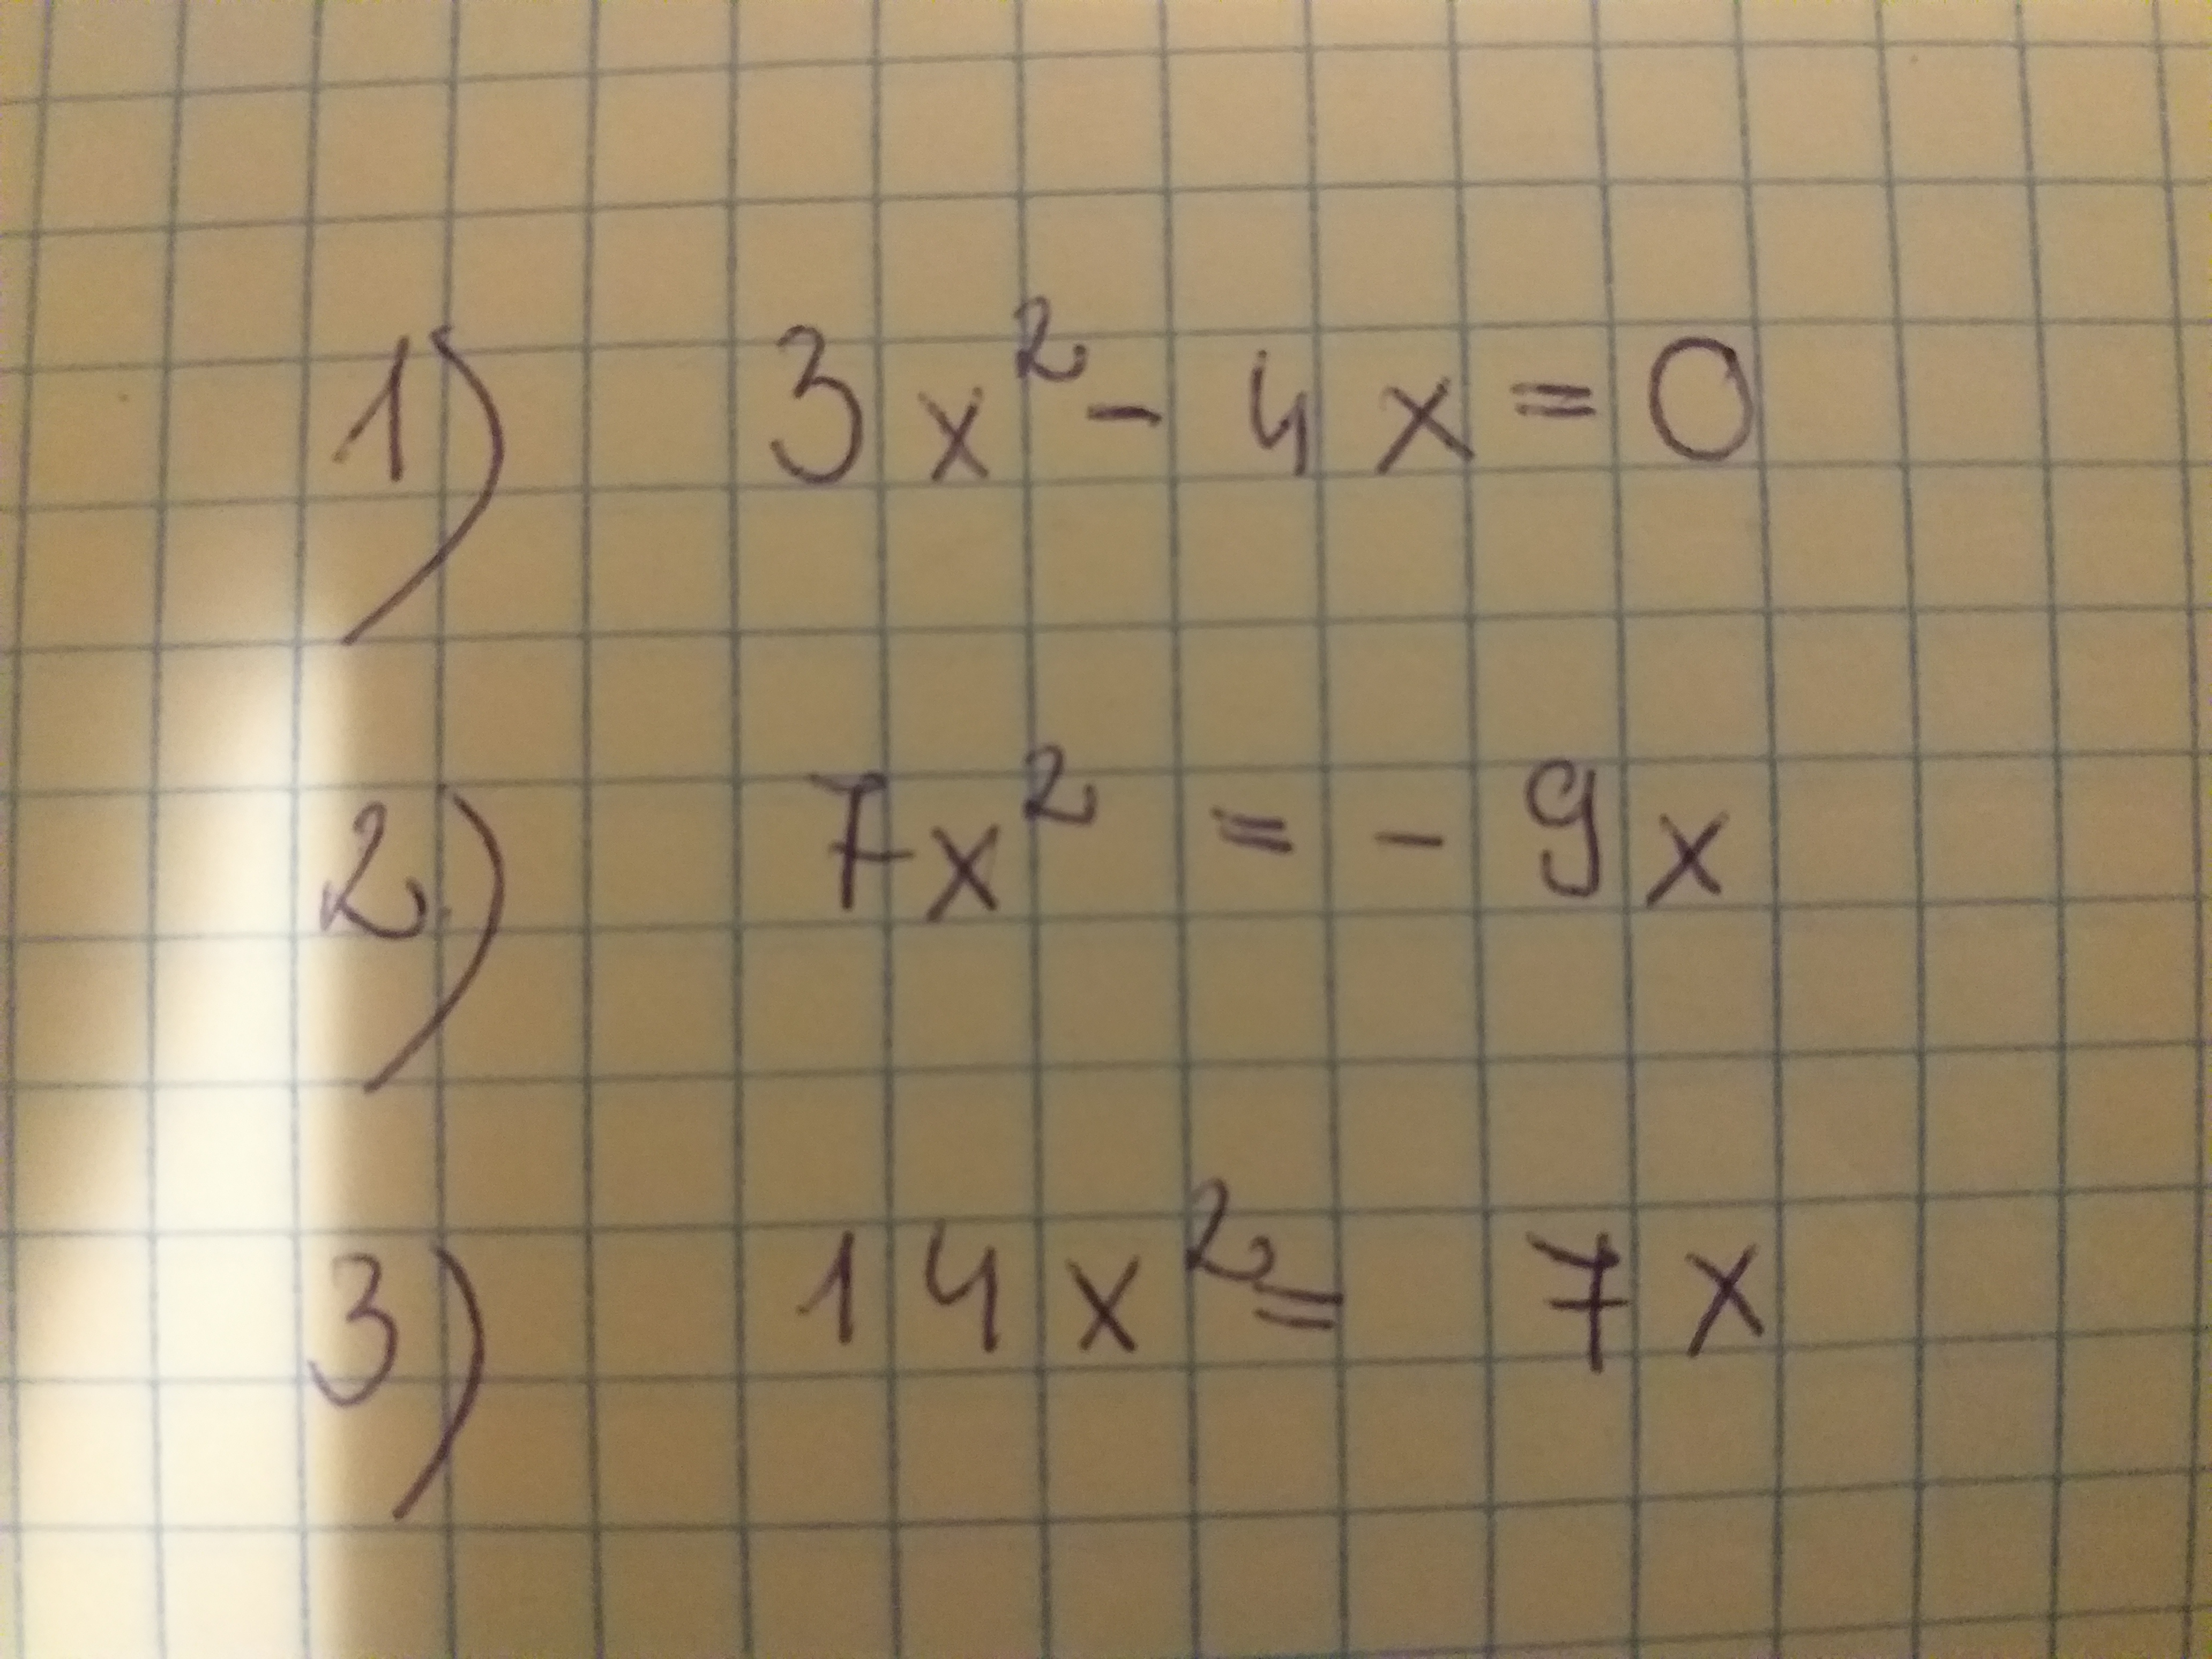 1) 3x² - 4x = 0
2) 7x² = - 9x
3) 14x² = 7x